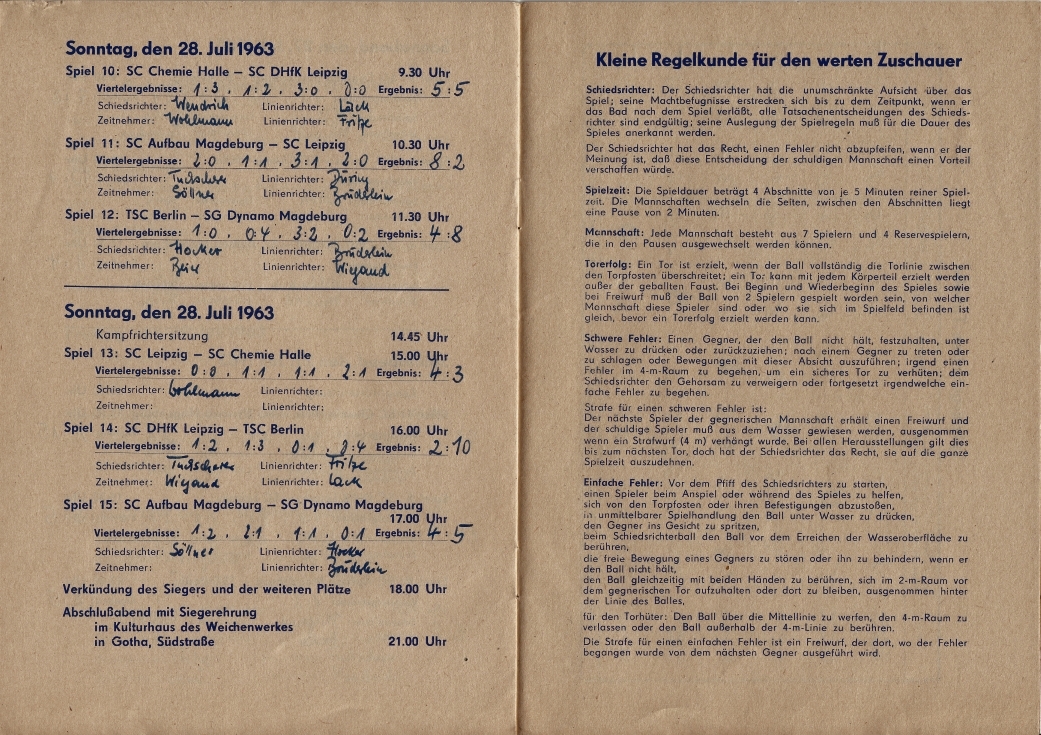 Sonntag, den 28. Juli 1963
Spiel 10: SC Chemie Halle – SC DHfK Leipzig 9.30 Uhr
Viertelergebnisse: 1:3 , 1:2 , 3:0 , 0:0 Ergebnis: 5:5
Schiedsrichter: Wendrich Linienrichter: Lack
Zeitnehmer: Wohlmann Linienrichter: Fritze
Spiel 11: SC Aufbau Magdeburg – SC Leipzig 10.30 Uhr
Viertelergebnisse: 2:0 , 1:1 , 3:1 , 2:0 Ergebnis: 8:2
Schiedsrichter: Linienrichter: Düring
Zeitnehmer: Söllner Linienrichter: Brüderlein
Spiel 12: TSC Berlin – SG Dynamo Magdeburg 11.30 Uhr
Viertelergebnisse: 1:0 , 0:4 , 3:2 , 0:2 Ergebnis: 4:8
Schiedsrichter: Hocker Linienrichter: Brüderlein
Zeitnehmer: Linienrichter: Wiegand
Sonntag, den 28. Juli 1963
Kampfrichtersitzung 14.45 Uhr
Spiel 13: SC Leipzig – SC Chemie Halle 15.00 Uhr
Viertelergebnisse: 0:0 , 1:1 , 1:1 , 2:1 Ergebnis: 4:3
Schiedsrichter: Wohlmann Linienrichter:
Zeitnehmer: Linienrichter:
Spiel 14: SC DHfK Leipzig – TSC Berlin 16.00 Uhr
Viertelergebnisse: 1:2 , 1:3 , 0:1 , 0:4 Ergebnis: 2:10
Schiedsrichter: Linienrichter: Fritze
Zeitnehmer: Wiegand Linienrichter: Lack
Spiel 15: SC Aufbau Magdeburg – SG Dynamo Magdeburg
17.00 Uhr
Viertelergebnisse: 1:2 , 2:1 , 1:1 , 0:1 Ergebnis: 4:5
Schiedsrichter: Söllner Linienrichter: Hocker
Zeitnehmer: Linienrichter: Brüderlein
Verkündung des Siegers und der weiteren Plätze 18.00 Uhr
Abschlußabend mit Siegerehrung
im Kulturhaus des Weichenwerkes
in Gotha, Südstraße 21.00 Uhr
Kleine Regelkunde für den werten Zuschauer
Schiedsrichter: Der Schiedsrichter hat die unumschränkte Aufsicht über das
Spiel; seine Machtbefugnisse erstrecken sich bis zu dem Zeitpunkt, wenn er
das Bad nach dem Spiel verläßt, alle Tatsachenentscheidungen des Schieds-
richter sind endgültig; seine Auslegung der Spielregeln muß für die Dauer des
Spieles anerkannt werden.
Der Schiedsrichter hat das Recht, einen Fehler nicht abzupfeifen, wenn er der
Meinung ist, daß diese Entscheidung der schuldigen Mannschaft einen Vorteil
verschaffen würde.
Spielzeit: Die Spieldauer beträgt 4 Abschnitte von je 5 Minuten reiner Spiel-
zeit. Die Mannschaften wechseln die Seiten, zwischen den Abschnitten liegt
eine Pause von 2 Minuten.
Mannschaft: Jede Mannschaft besteht aus 7 Spielern und 4 Reservespielern,
die in den Pausen ausgewechselt werden können.
Torerfolg: Ein Tor ist erzielt, wenn der Ball vollständig die Torlinie zwischen
den Torpfosten überschreitet; ein Tor kann mit jedem Körperteil erzielt werden
außer der geballten Faust. Bei Beginn und Wiederbeginn des Spieles sowie
bei Freiwurf muß der Ball von 2 Spielern gespielt worden sein, von welcher
Mannschaft diese Spieler sind oder wo sie sich im Spielfeld befinden ist
gleich, bevor ein Torerfolg erzielt werden kann.
Schwere Fehler: Einen Gegner, der den Ball nicht hält, festzuhalten, unter
Wasser zu drücken oder zurückzuziehen; nach einem Gegner zu treten oder
zu schlagen oder Bewegungen mit dieser Absicht auszuführen; irgend einen
Fehler im 4-m-Raum zu begehen, um ein sicheres Tor zu verhüten; dem
Schiedsrichter den Gehorsam zu verweigern oder fortgesetzt irgendwelche ein-
fache Fehler zu begehen.
Strafe für einen schweren Fehler ist:
Der nächste Spieler der gegnerischen Mannschaft erhält einen Freiwurf und
der schuldige Spieler muß aus dem Wasser gewiesen werden, ausgenommen
wenn ein Strafwurf (4 m) verhängt wurde. Bei allen Herausstellungen gilt dies
bis zum nächsten Tor, doch hat der Schiedsrichter das Recht, sie auf die ganze
Spielzeit auszudehnen.
Einfache Fehler: Vor dem Pfiff des Schiedsrichters zu starten,
einen Spieler beim Anspiel oder während des Spieles zu helfen,
sich von den Torpfosten oder ihren Befestigungen abzustoßen,
in unmittelbarer Spielhandlung den Ball unter Wasser zu drücken,
den Gegner ins Gesicht zu spritzen,
beim Schiedsrichterball den Ball vor dem Erreichen der Wasseroberfläche zu
berühren,
die freie Bewegung eines Gegners zu stören oder ihn zu behindern, wenn er
den Ball nicht hält,
den Ball gleichzeitig mit beiden Händen zu berühren, sich im 2-m-Raum vor
dem gegnerischen Tor aufzuhalten oder dort zu bleiben, ausgenommen hinter
der Linie des Balles,
für den Torhüter: Den Ball über die Mittellinie zu werfen, den 4-m-Raum zu
verlassen oder den Ball außerhalb der 4-m-Linie zu berühren.
Die Strafe für einen einfachen Fehler ist ein Freiwurf, der dort, wo der Fehler
begangen wurde von dem nächsten Gegner ausgeführt wird.